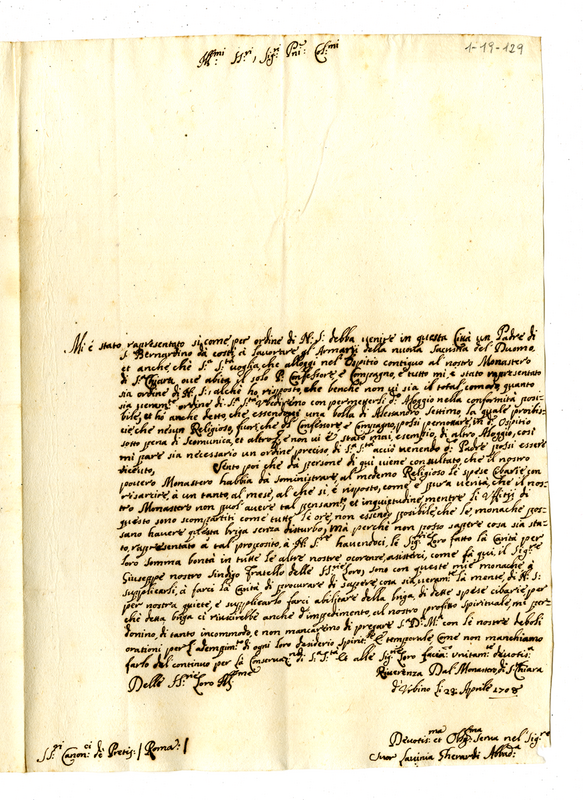 1-19-129
Ill:mi SS:ri, Sig:ri Pni: Col:mi
Mi è stato rapresentato si come per ordine di N: S: debba venire in questa Città un Padre di
S. Bernardino da costì à lavorare gl'Armarij della nuova Sacristia del Duomo
et anche che S: S:tà voglia che alloggi nel Ospitio contiguo al nostro Monastero
di S: Chiara, ove abita il solo P: Confessore e Compagno, e tutto mi è stato rapresentato
sia ordine di N: S: al che hò risposto, che benche non vi sia il total comodo quanto
sia veram:te ordine di S: S:tà Vbediremo con permeterseli d: Aloggio nella conformità posi-
bile, et hò anche detto, che essendovi una bolla di Alesandro Settimo la quale proibis-
ce che nesun Religioso, fuor che di Confesore e Compagno, possi pernotare, in d: Ospitio
sotto pena di Scomunica, et altro, e non vi è stato mai, esempio, di altro Alogio, così
mi pare sia necessario un ordine preciso di S: S:tà acciò venendo d: Padre possi essere
riceuto, Sento poi che da persone di qui viene consultato che il nostro
povero Monastero habbia da soministrare, al medemo Religioso le spese cibarie con
risarcire, à un tanto, al mese, al che si, è risposto, come è pura verità, che il nos-
tro Monastero non puol' avere tal pensam:to, et inquietudine, mentre li Offitij di
questo sono scompartiti come tutte le ore, non essendo posibile, che le, monache pos-
sano havere questa briga senza disturbo; Mà perche non posso sapere cosa sia sta-
to, rapresentato à tal proposito, à N: S:re havendoci, le Sig:rie Loro fatto la Carità per
loro somma bontà in tutte le altre nostre ocorenze, asisterci, come fà qui il Sig:re
Giuseppe nostro Sindico Fratello delle SS:rie Loro, sono con queste mie monache à
suplicarli, à farci la Carità di procurare di sapere, cosa sia veram:te la mente, di N: S:
per nostra quiete, è suplicarlo farci abilitare della briga, di dette spese cibarie per
che detta briga ci riuscirebbe anche d'impedimento, al nostro profitto spirituale, mi per-
donino, di tanto incommodo, e non mancaremo di pregare S: D: M:tà con le nostre deboli
orationi per l'adempim:to di ogni loro desiderio spirit:le e temporale Come non manchiamo
farlo del continuo per la Conservaz:ne di S: S:tà Et alle Sig:rie Loro facia: Vnitam:te devotis:a
Riverenza Dal Monaster: di S: Chiara
Delle SS:rie Loro Ill:me
d'Urbino li: 28: Aprile 1708
Devotis:ma et Obg:ma Serva nel Sig:re
Suor Lavinia Gherardi Abbad:
SS:ri Canon:ci de Pretis: / Roma: /